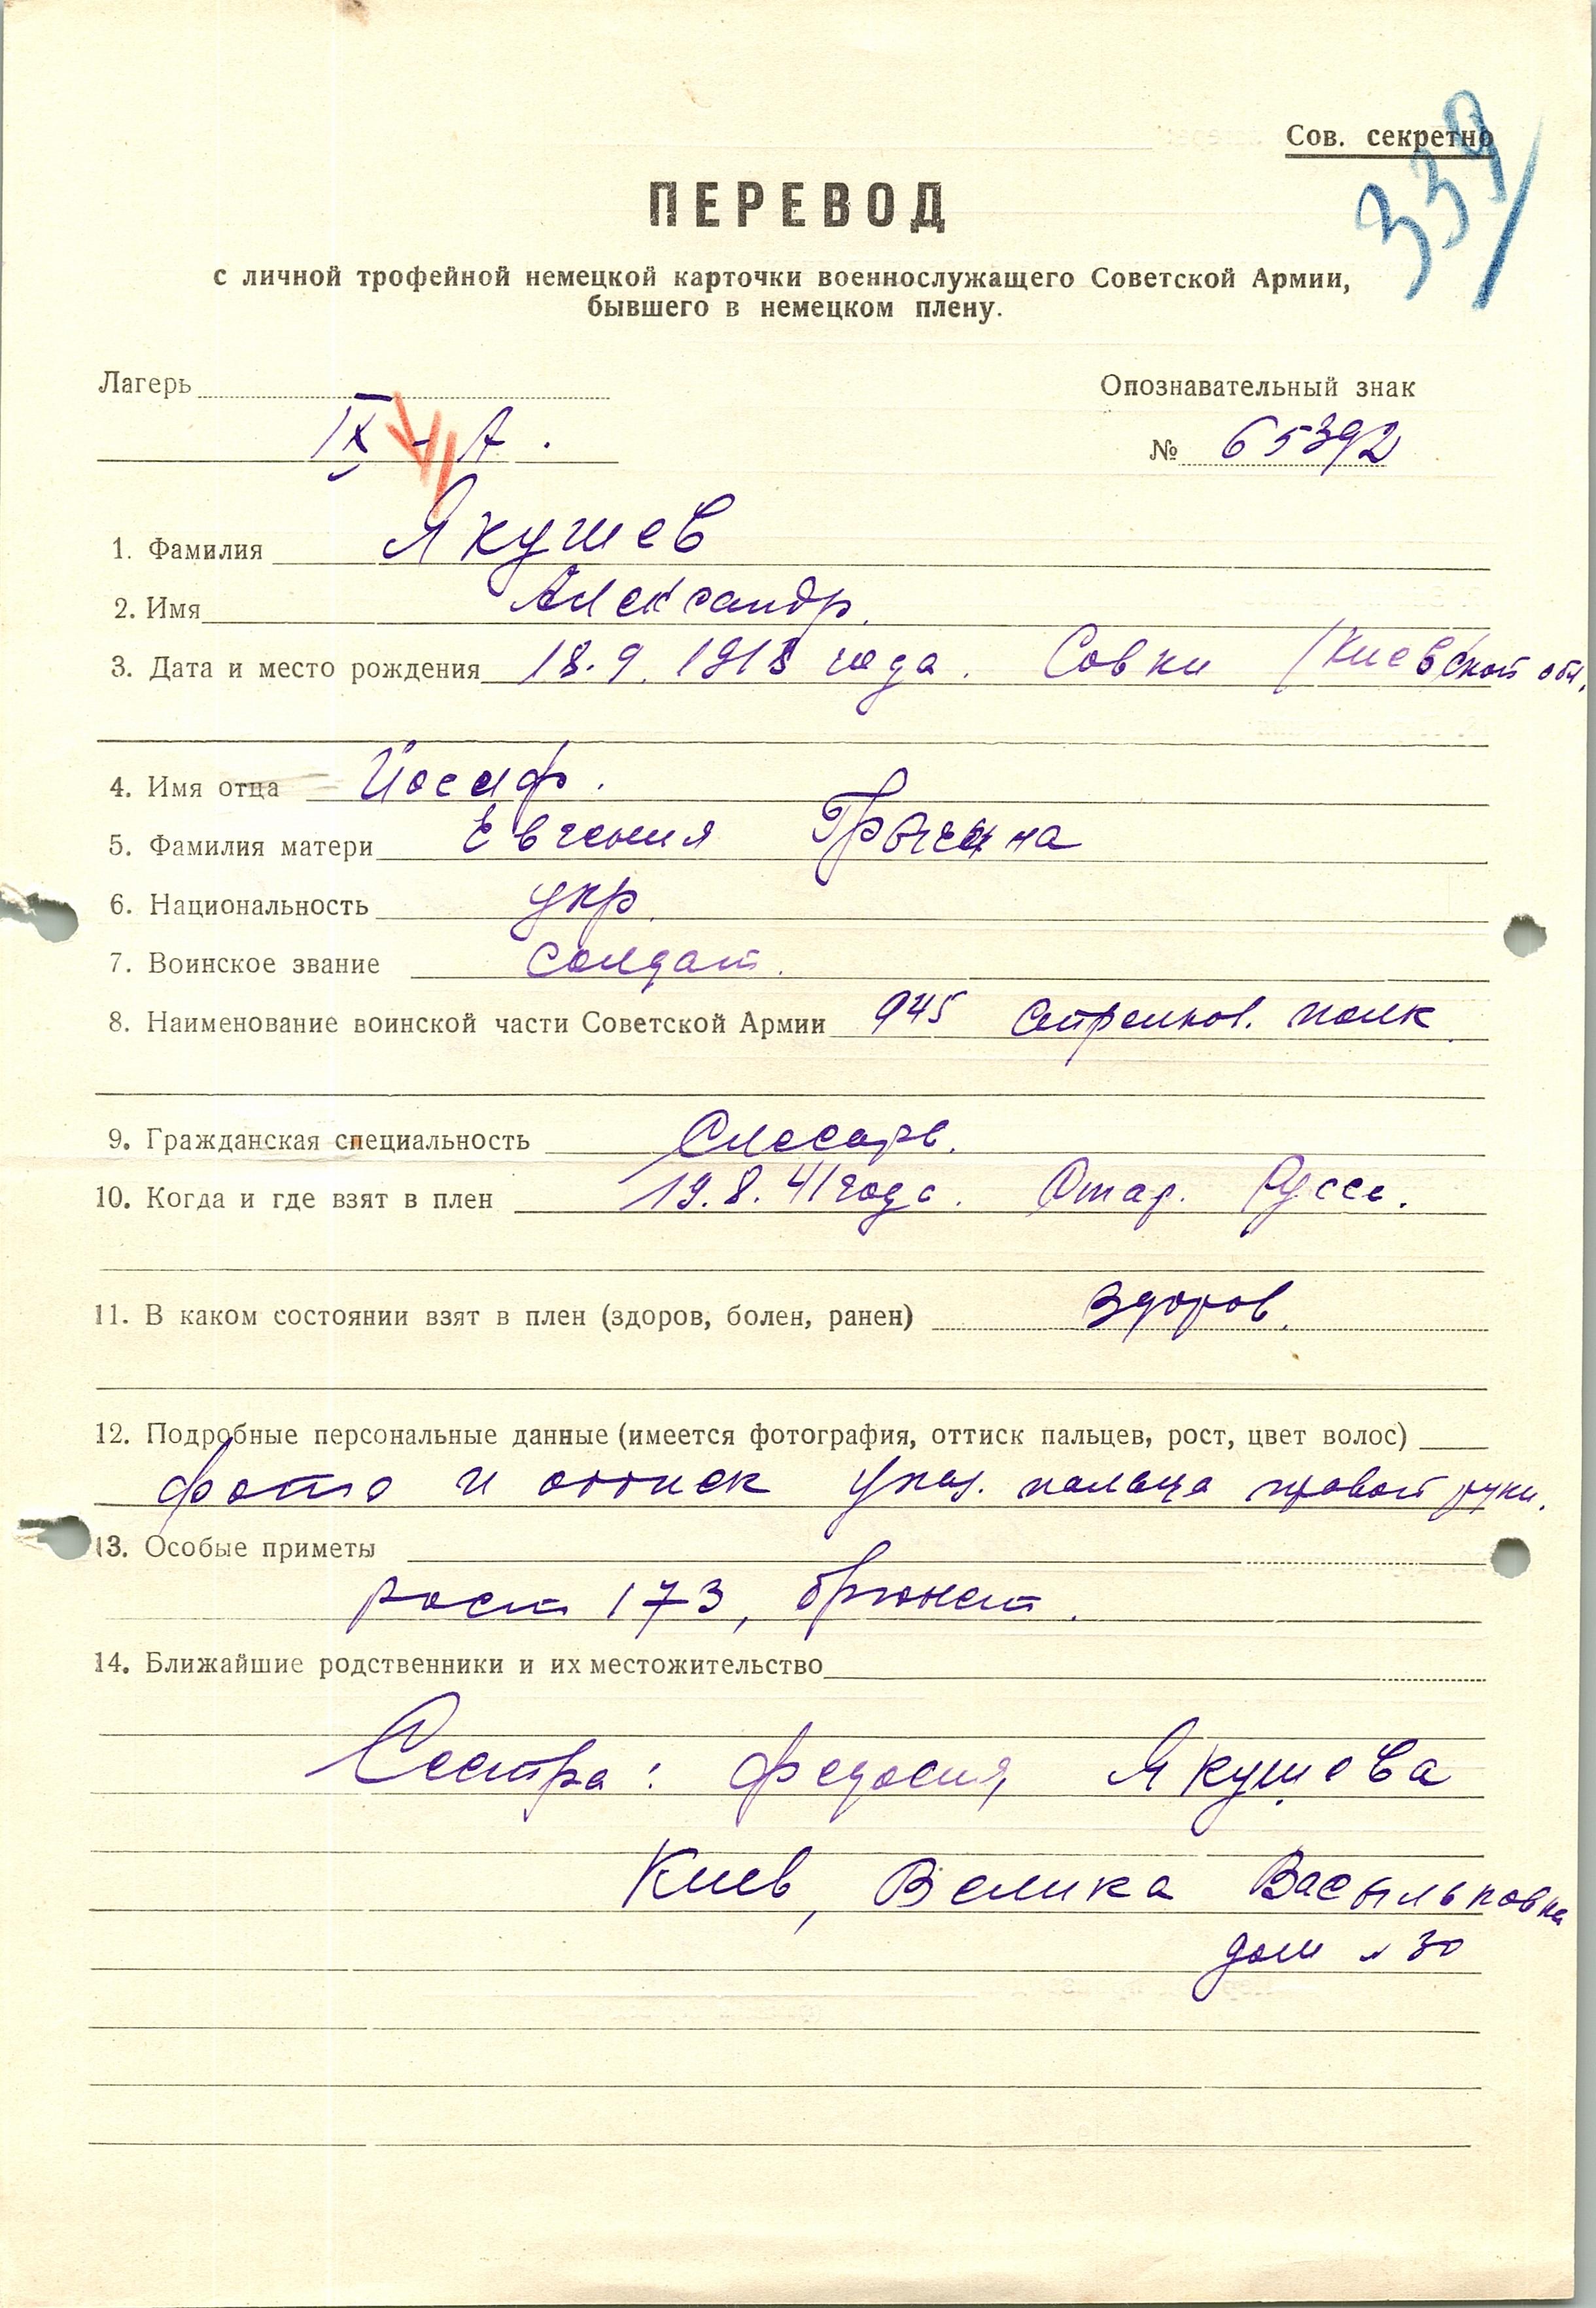 339/
Сов. секретно
ПЕРЕВОД
с личной трофейной немецкой карточки военнослужащего Советской Армии,
бывшего в немецком плену.
Лагерь
Опознавательный знак
IX - А.
№ 65392
1. Фамилия Якушев
2. Имя Александр.
3. Дата и место рождения 18.9.1918 года. Совки /Киевской обл.
4. Имя отца Йосиф.
5. Фамилия матери Евгения
6. Национальность укр.
7. Воинское звание солдат.
8. Наименование воинской части Советской Армии 945 Стрелков. полк
9. Гражданская специальность Слесарь.
10. Когда и где взят в плен 19.8.41 года. Стар. Русса.
11. В каком состоянии взят в плен (здоров, болен, ранен) здоров.
12. Подробные персональные данные (имеется фотография, оттиск пальцев, рост, цвет волос)
фото и оттиск указ. пальца правой руки.
13. Особые приметы
рост 173, брюнет.
14. Ближайшие родственники и их местожительство
Сестра: Федосия Якушева
Киев, Велика Васыльковка
дом № 30